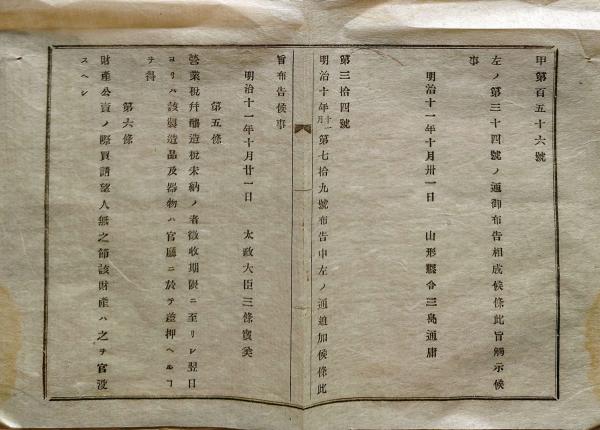 甲第百五十六號
左ノ第三十四號ノ通御布告相成候條此旨觸示候
事
明治十一年十月卅一日　山形縣令三島通庸
第三拾四號
明治十年十一月第七拾九號布告中左ノ通追加候條此
旨布告候事
明治十一年十月廿一日　太政大臣三條實美
第五條
營業稅幷釀造稅未納ノ者徵收期限ニ至リレ翌日
ヨリハ該釀造品及器物ハ官廳ニ於テ差押ヘルヿ
ヲ得
第六條
財產公賣ノ際買請望人無之節該財產ハ之ヲ官沒
スヘシ